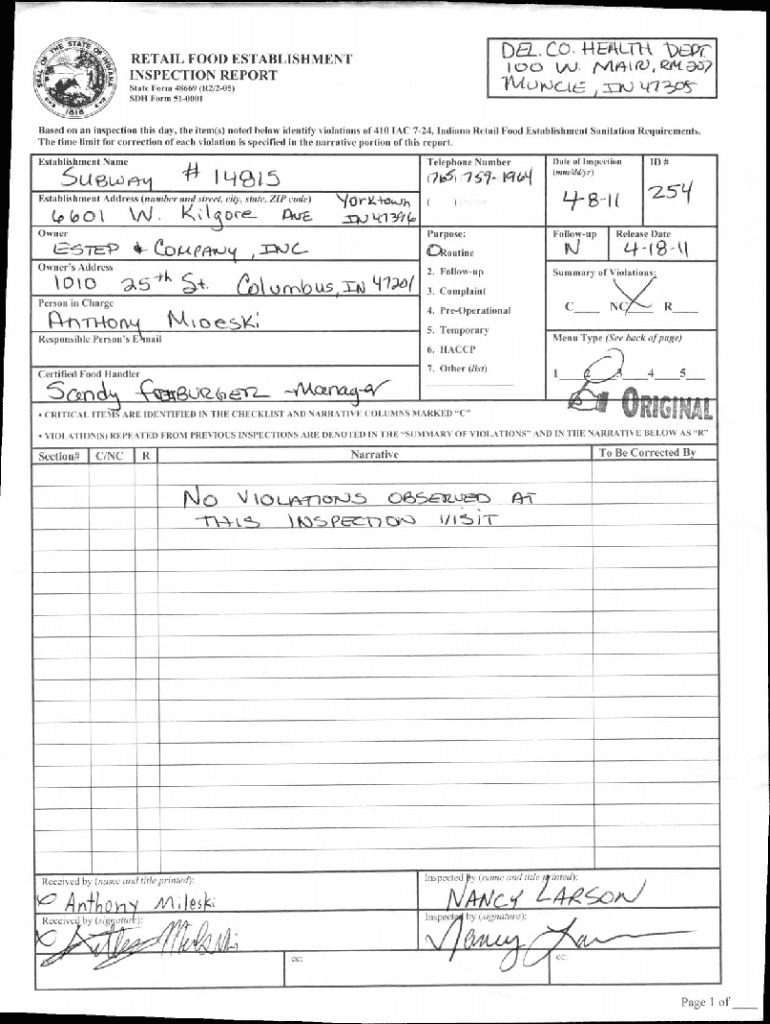 SEAL OF THE STATE OF INDIANA
1816
RETAIL FOOD ESTABLISHMENT
INSPECTION REPORT
State Form 48669 (R2/2-05)
SDH Form 51-0001
DEL. CO. HEALTH DEPT
100 W. MAIN, RM 207
MUNCIE, IN 47305
Based on an inspection this day, the item(s) noted below identify violations of 410 IAC 7-24, Indiana Retail Food Establishment Sanitation Requirements.
The time limit for correction of each violation is specified in the narrative portion of this report.
Establishment Name
SUBWAY # 14815
Telephone Number
(765) 759-1964
( )
Date of Inspection
(mm/dd/yr)
4-8-11
ID #
254
Establishment Address (number and street, city, state, ZIP code)
6601 W. Kilgore AVE Yorktown
IN 47396
Owner
ESTEP & COMPANY, INC
Purpose:
Routine
2. Follow-up
3. Complaint
4. Pre-Operational
5. Temporary
6. HACCP
7. Other (list)
Follow-up
N
Release Date
4-18-11
Owner's Address
1010 25th St. Columbus, IN 47201
Summary of Violations:
C___ NC___ R___
Person in Charge
ANTHONY MIOESKI
Responsible Person's E-mail
Menu Type (See back of page)
1___ 2 3 4___ 5___
Certified Food Handler
Sandy -Manager
ORIGINAL
• CRITICAL ITEMS ARE IDENTIFIED IN THE CHECKLIST AND NARRATIVE COLUMNS MARKED "C"
• VIOLATION(S) REPEATED FROM PREVIOUS INSPECTIONS ARE DENOTED IN THE "SUMMARY OF VIOLATIONS" AND IN THE NARRATIVE BELOW AS "R"
Section# C/NC R Narrative To Be Corrected By
NO VIOLATIONS OBSERVED AT
THIS INSPECTION VISIT
Received by (name and title printed):
Anthony Mileski
Inspected by (name and title printed):
NANCY LARSON
Received by (signature):
Inspected by (signature):
Nancy
cc:
cc:
Page 1 of ___